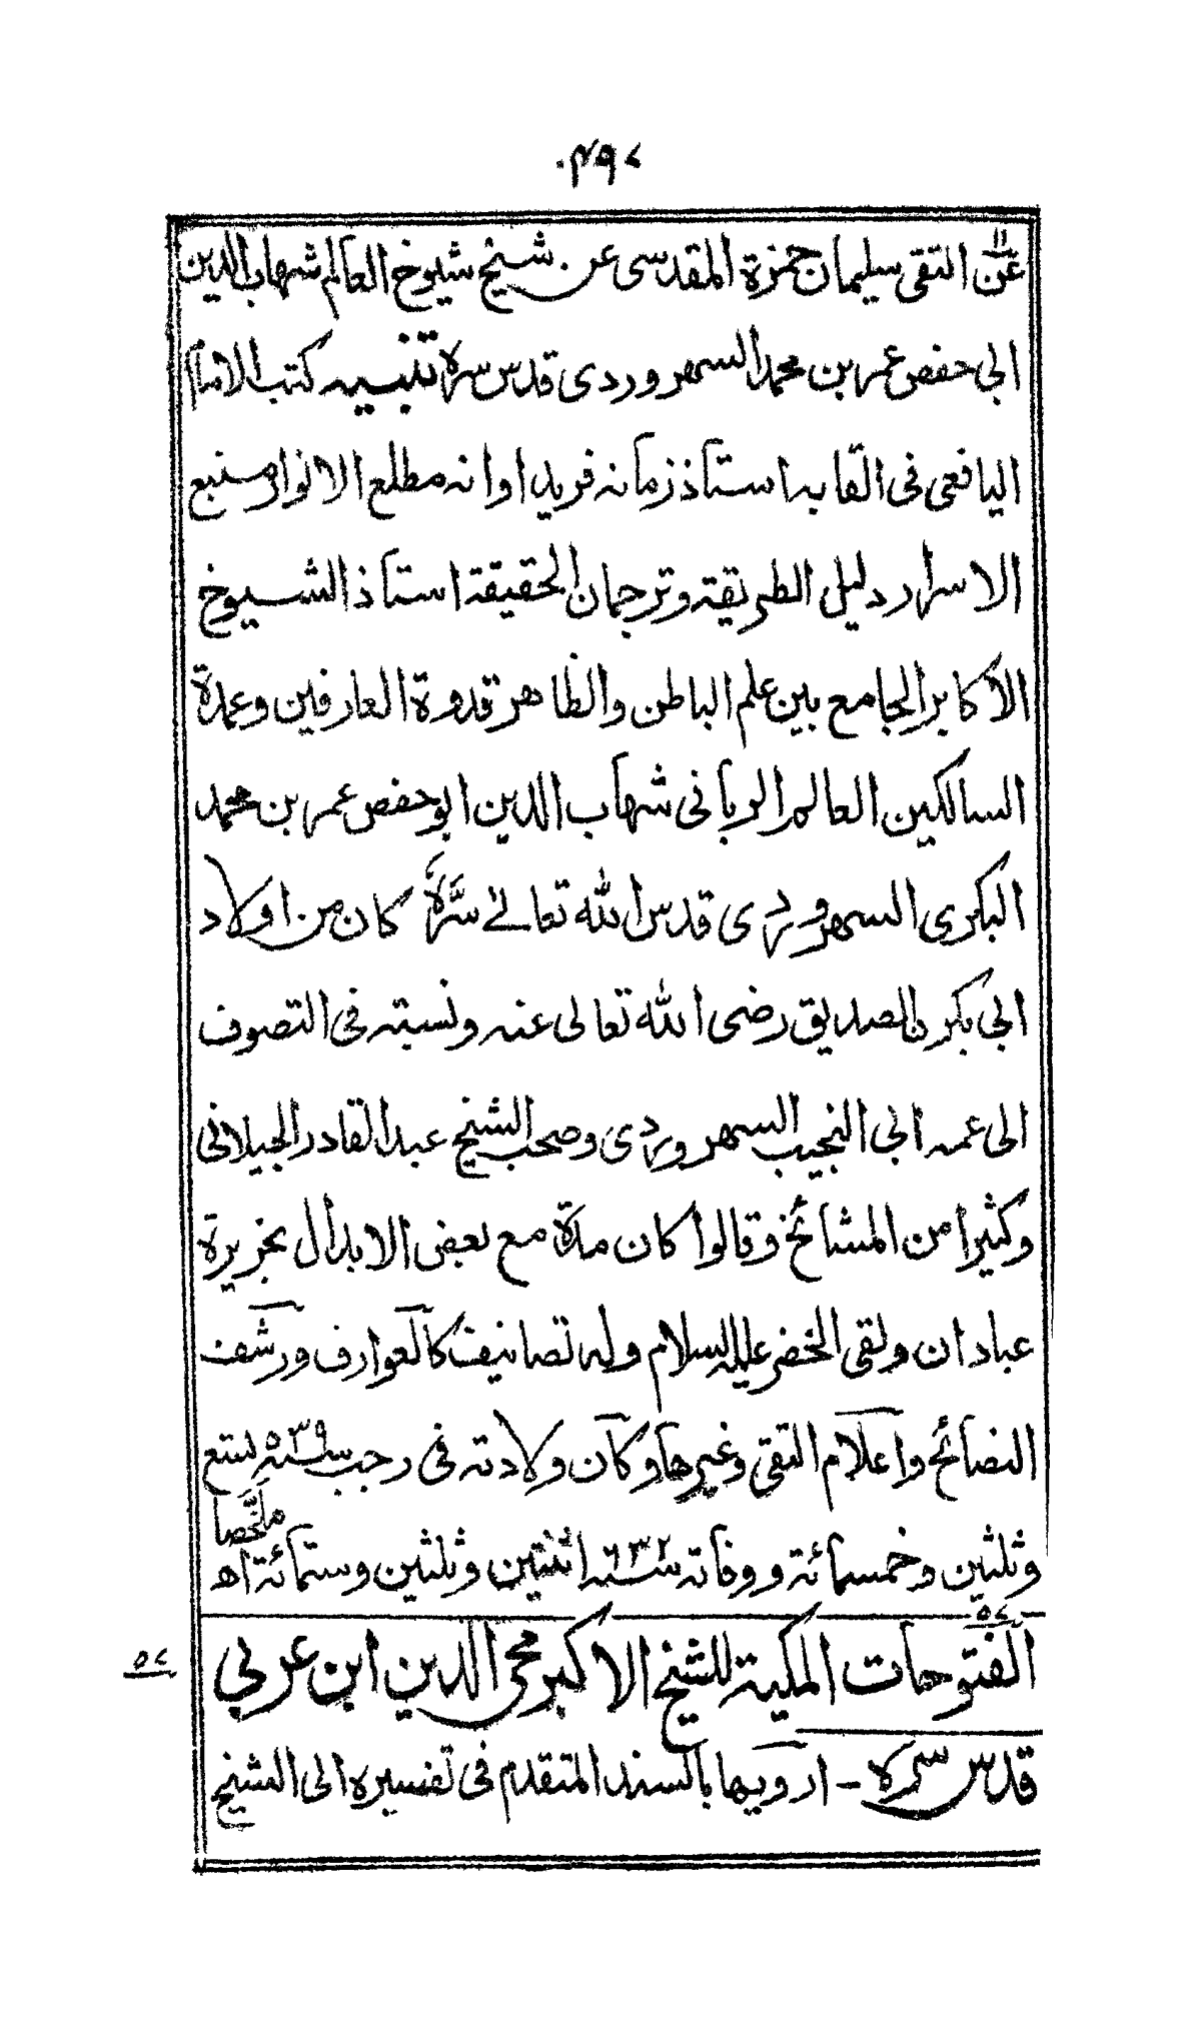 ٤٩٧
عن التقى سليمان حمزة المقدسى عن شيخ شيوخ العالم شهاب الدين
ابى حفص عمر بن محمد السهروردى قدس سره تنبيه كتب الامام
اليافعى فى القابه استاذ زمانه فريد اوانه مطلع الانوار منبع
الاسرار دليل الطريقة وترجمان الحقيقة استاذ الشيوخ
الاكابر الجامع بين علم الباطن والظاهر قدوة العارفين وعمدة
السالكين العالم الربانى شهاب الدين ابو حفص عمر بن محمد
البكرى السهروردى قدس الله تعالى سرّه كان من اولاد
ابى بكر الصديق رضى الله تعالى عنه ونسبته فى التصوف
الى عمه ابى النجيب السهروردى وصحب الشيخ عبد القادر الجيلانى
وكثيرا من المشائخ وقالوا كان مدة مع بعض الابدال بجزيرة
عبادان ولقى الخضر عليه السلام وله تصانيف كالعوارف ورشف
النصائح واعلام التقى وغيرها وكان ولادته فى رجب سنه ٥٣٩ تسع
وثلثين وخمسمائة ووفاته سنه ٦٣٢ اثنتين وثلثين وستمائة اھ ملخصا
٥٧ الفتوحات المكية للشيخ الاكبر محى الدين ابن عربي ٥٧
قدس سره - ارويها بالسند المتقدم فى تفسيره الى الشيخ